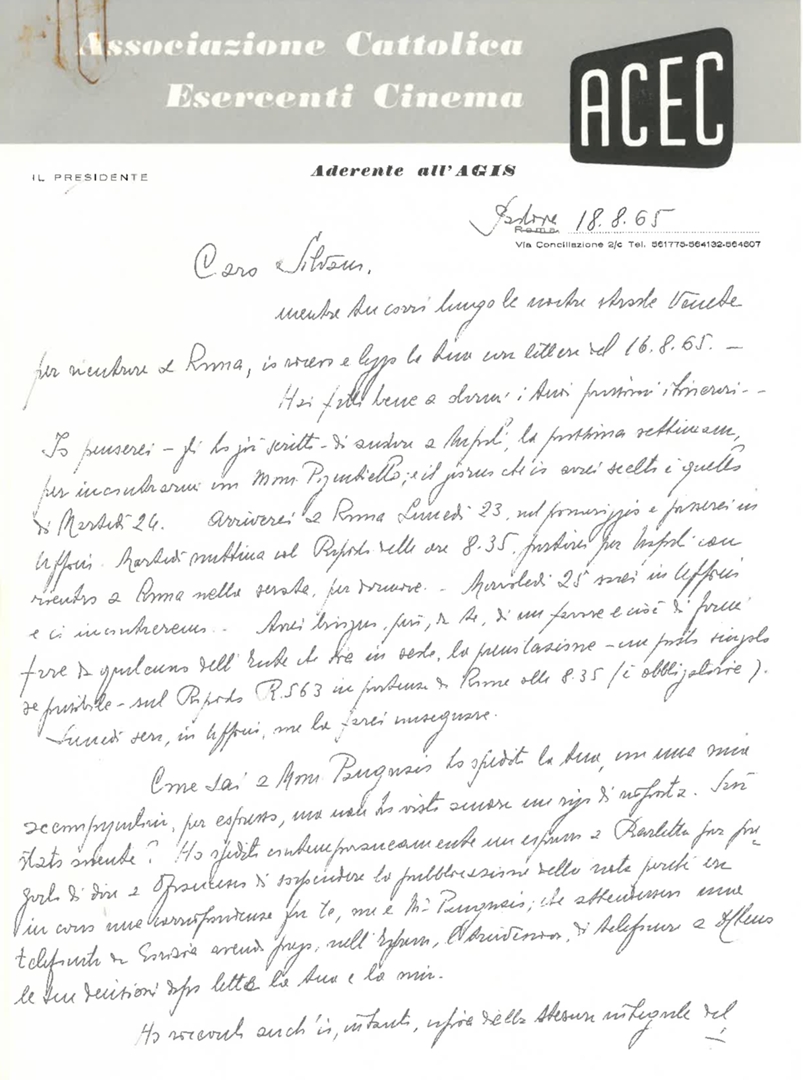 Associazione Cattolica
Esercenti Cinema
ACEC
IL PRESIDENTE
Aderente all'AGIS
Padova 18.8.65
Roma
Via Conciliazione 2/c Tel. 561775-564132-564607
Caro Silvano,
mentre tu corri lungo le nostre strade Venete
per rientrare a Roma, io ricevo e leggo la tua lettera del 16.8.65. —
Hai fatto bene a darmi i tuoi prossimi itinerari. -
Io penserei - gli ho già scritto - di andare a Napoli, la prossima settimana,
per incontrarmi con Mons. e il giorno che io avrei scelto è quello
di Martedì 24. Arriverei a Roma Lunedì 23, nel pomeriggio e passerei in
Ufficio. Martedì mattina col Rapido delle ore 8.35, partirei per Napoli con
rientro a Roma nella serata, per dormire. - Mercoledì 25 sarei in Ufficio
e ci incontreremo. - Avrei bisogno, però, da te, di un favore e cioè di farmi
fare da qualcuno dell'Ente che sia in sede, la prenotazione - un posto singolo
se possibile - sul Rapido R.563 in partenza da Roma alle 8.35 (è obbligatoria).
Lunedì sera, in Ufficio, me la farei consegnare.
Come sai a Mons. ho spedito la tua, con una mia
accompagnatoria, per espresso, ma non ho visto ancora un rigo di risposta. Sarà
stato assente? Ho spedito contemporaneamente un espresso a Barletta per pre-
garlo di dire a di sospendere la pubblicazione della nota perché era
in corso una corrispondenza fra te, me e M. che attendessero una
telefonata da avendo prego, nell' di telefonare a
le sue decisioni dopo letta la tua e la mia.
Ho ricevuto anch'io, intanto, copia della stesura integrale del